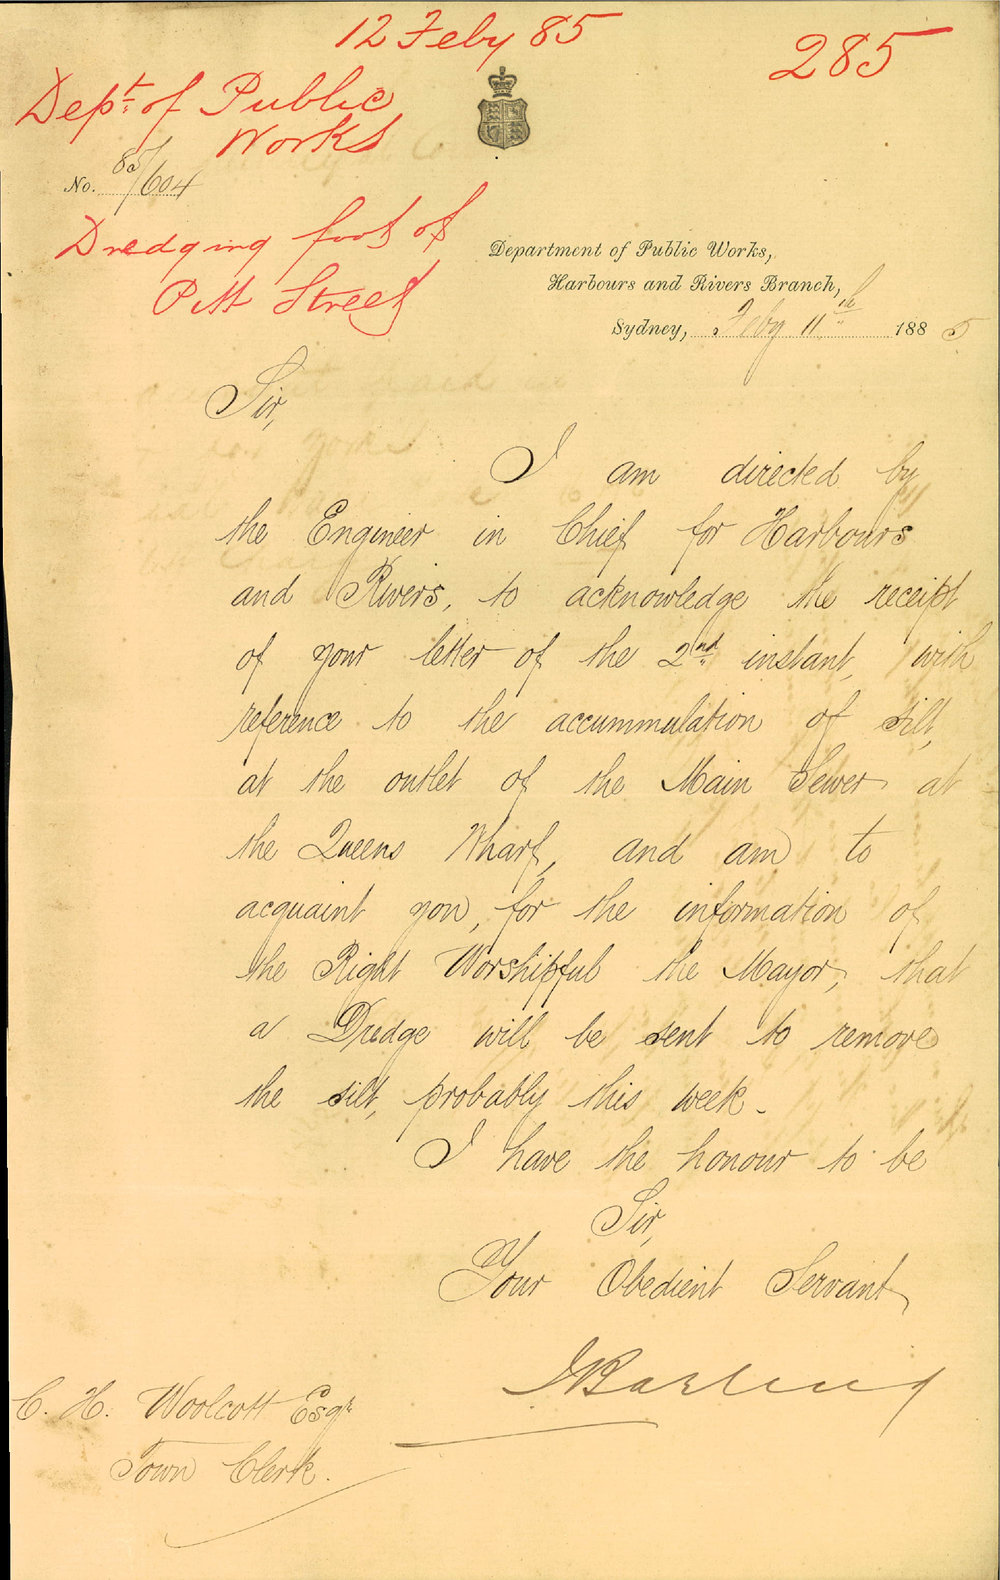 12 Feby 85
285
Dept. of Public
Works
No. 85/604
Dredging foot of
Pitt Street
Department of Public Works,
Harbours and Rivers Branch,
Sydney, Feby 11th 1885
Sir,
I am directed by
the Engineer in Chief for Harbours
and Rivers, to acknowledge the receipt
of your letter of the 2nd. instant, with
reference to the accummulation of silt,
at the outlet of the Main Sewer at
the Queens Wharf, and am to
acquaint you, for the information of
the Right Worshipful the Mayor, that
a Dredge will be sent to remove
the silt, probably this week.
I have the honour to be
Sir,
Your Obedient Servant
J Barling
C. H. Woolcott Esqr
Town Clerk.